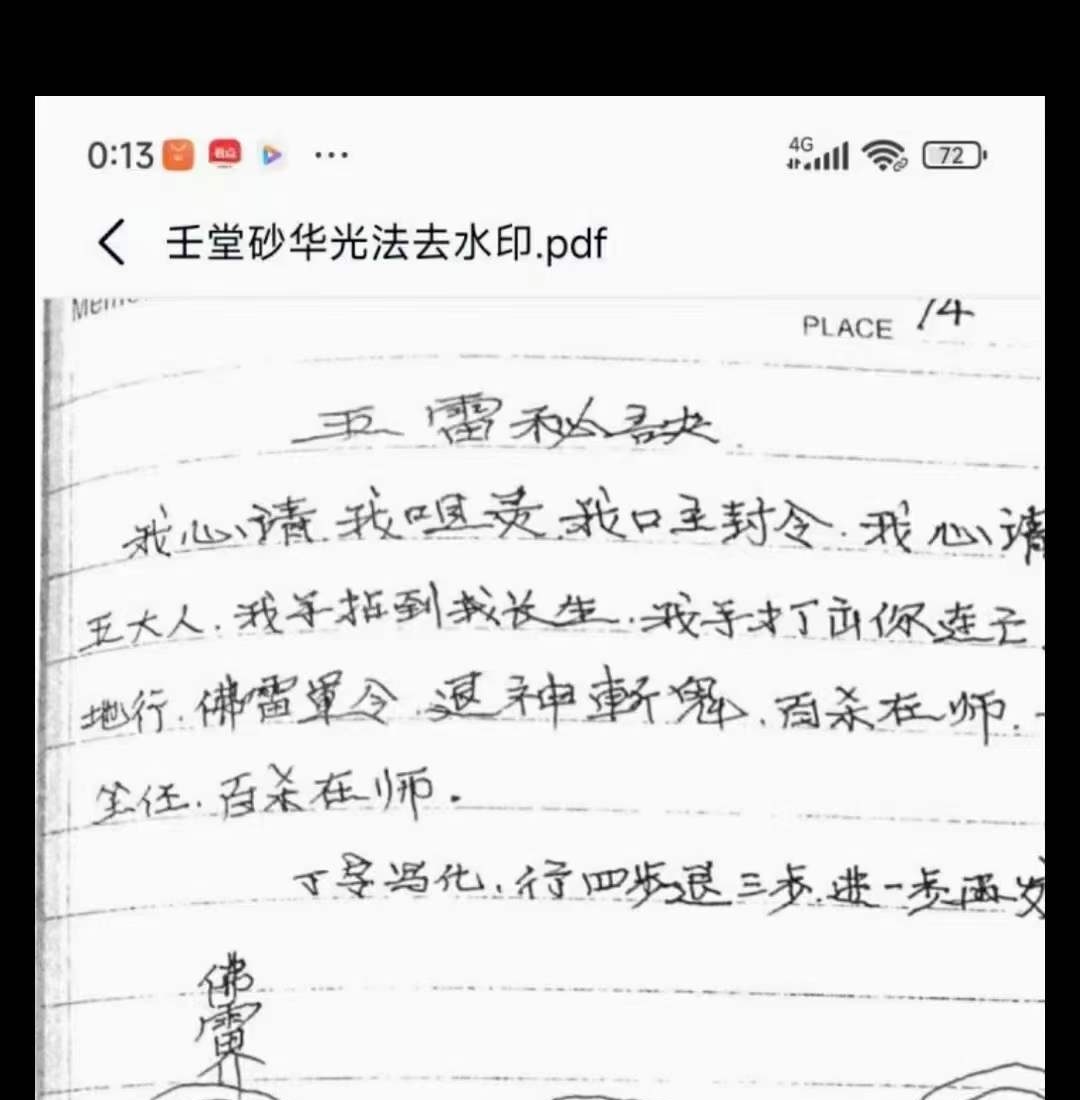 0:13 ... 4G 72
壬堂砂华光法去水印.pdf
PLACE 14
五雷秘诀
我心请.我咀灵.我口至封令.我心请
五大人.我手拈到我长生.我手打出你连亡
地行.佛雷軍令.退神斬鬼.百杀在师.
坐任.百杀在师.
丁字冯化.行四步退三步.进一步画
佛
雷